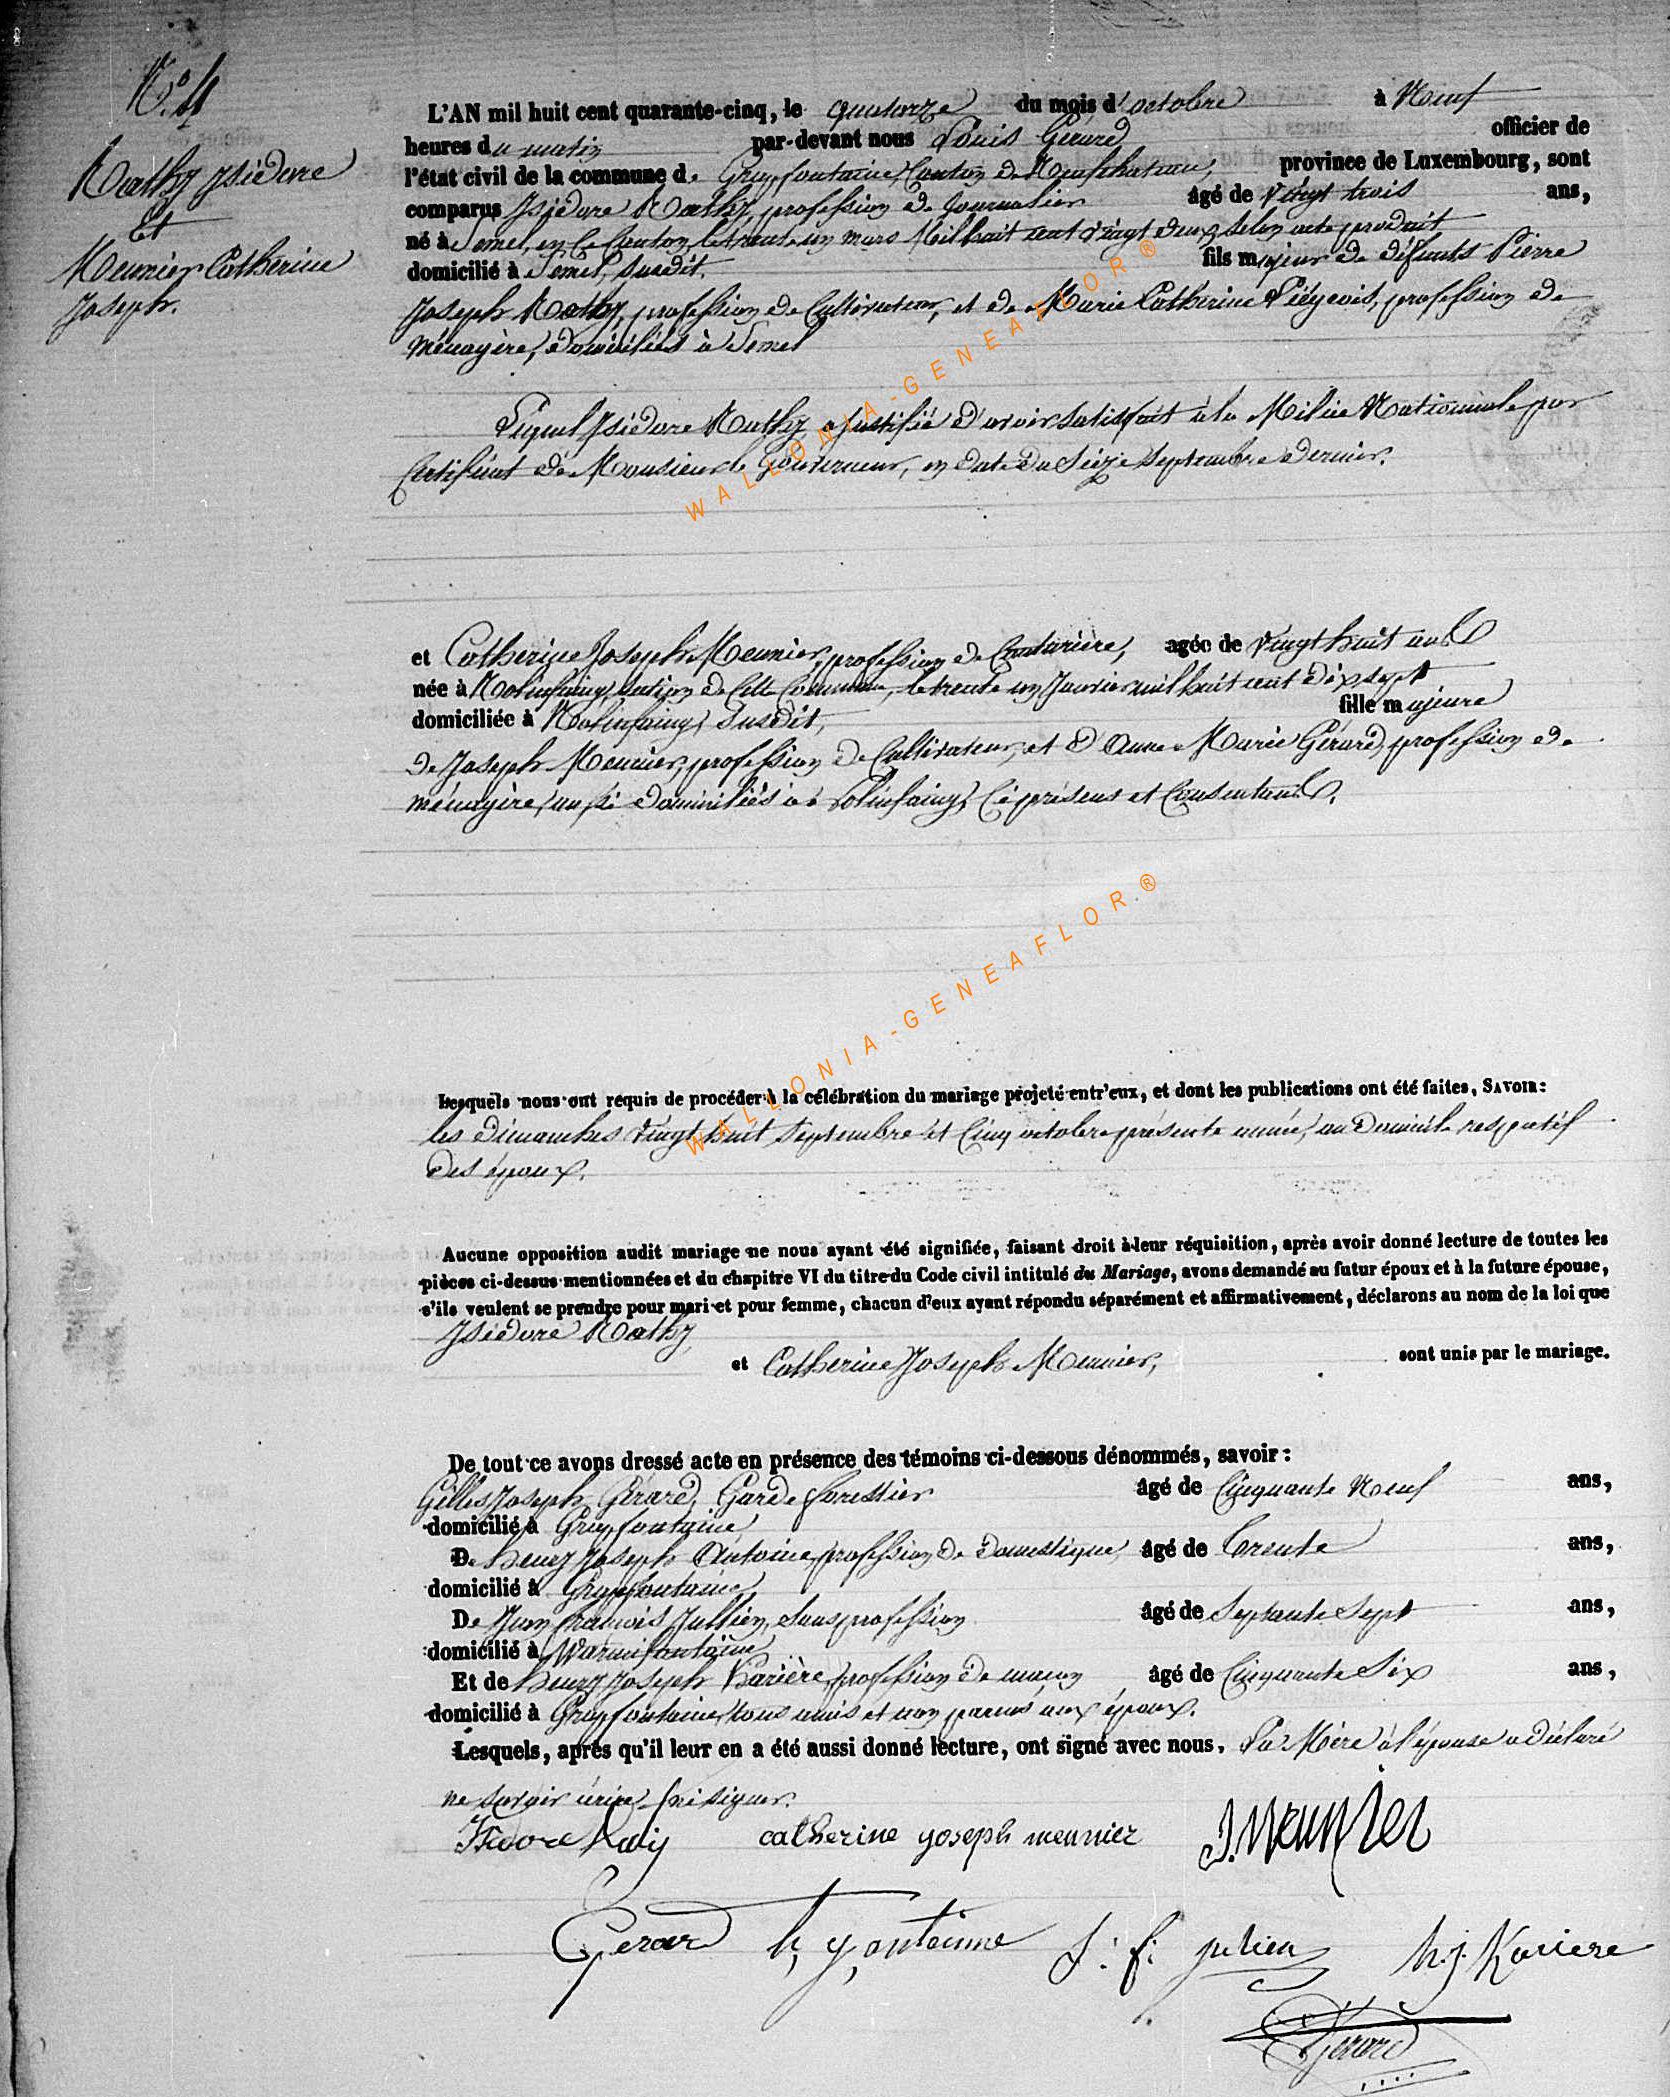 N.º 4
Mathy Isidore
Et
Meunier Catherine
Joseph.
L'AN mil huit cent quarante-cinq, le quatorze du mois d'octobre à Neuf
heures du matin par-devant nous Louis Gérard officier de
l'état civil de la commune de Grapfontaine, Canton de Neufchateau, province de Luxembourg, sont
comparus Isidore Mathy, profession de Journalier âgé de vingt trois ans,
né à Semel, en ce Canton, le trente un mars Mil huit cent vingt deux, selon acte produit
domicilié à Semel, susdit. fils majeur de défunts Pierre
Joseph Mathy, profession de Cultivateur, et de Marie Catherine Liégeois, profession de
ménagère, domiciliés à Semel
Lequel Isidore Mathy a justifié d'avoir satisfait à la Milice Nationale par
Certificat de Monsieur le Gouverneur, en date du Seize septembre dernier.
et Catherine Joseph Meunier, profession de Couturière, agée de vingt huit ans
née à Molinfaing, section de Cette Commune, le trente un Janvier mil huit cent dix sept
domiciliée à Molinfaing, susdit, fille majeure
de Joseph Meunier, profession de Cultivateur, et d'Anne Marie Gérard, profession de
ménagère, aussi domiciliés à Molinfaing, Ci présens et Consentans.
Lesquels nous ont requis de procéder à la célébration du mariage projeté entr'eux, et dont les publications ont été faites, SAVOIR:
les dimanches vingt huit septembre et Cinq octobre présente année, au domicile respectif
des époux.
Aucune opposition audit mariage ne nous ayant été signifiée, faisant droit à leur réquisition, après avoir donné lecture de toutes les
pièces ci-dessus mentionnées et du chapitre VI du titre du Code civil intitulé du Mariage, avons demandé au futur époux et à la future épouse,
s'ils veulent se prendre pour mari et pour femme, chacun d'eux ayant répondu séparément et affirmativement, déclarons au nom de la loi que
Isidore Mathy
et Catherine Joseph Meunier, sont unis par le mariage.
De tout ce avons dressé acte en présence des témoins ci-dessous dénommés, savoir:
Gilles Joseph Gérard, Garde forestier âgé de Cinquante Neuf ans,
domicilié à Grapfontaine,
De henry Joseph Antoine, profession de domestique, âgé de Trente ans,
domicilié à Grapfontaine,
De Jean françois Jullien, sans profession âgé de Septante Sept ans,
domicilié à Warmifontaine,
Et de henry Joseph Karière, profession de maçon âgé de Cinquante Six ans,
domicilié à Grapfontaine, tous amis et non parens aux époux.
Lesquels, après qu'il leur en a été aussi donné lecture, ont signé avec nous. La Mère à l'épouse a déclaré
ne savoir écrire, ni signer.
catherine yoseph meunier J. Meunier
Gerard h, y, antoinne J: f: julien h. j. Kariere
Gérard
WALLONIA-GENEAFLOR®
WALLONIA-GENEAFLOR®